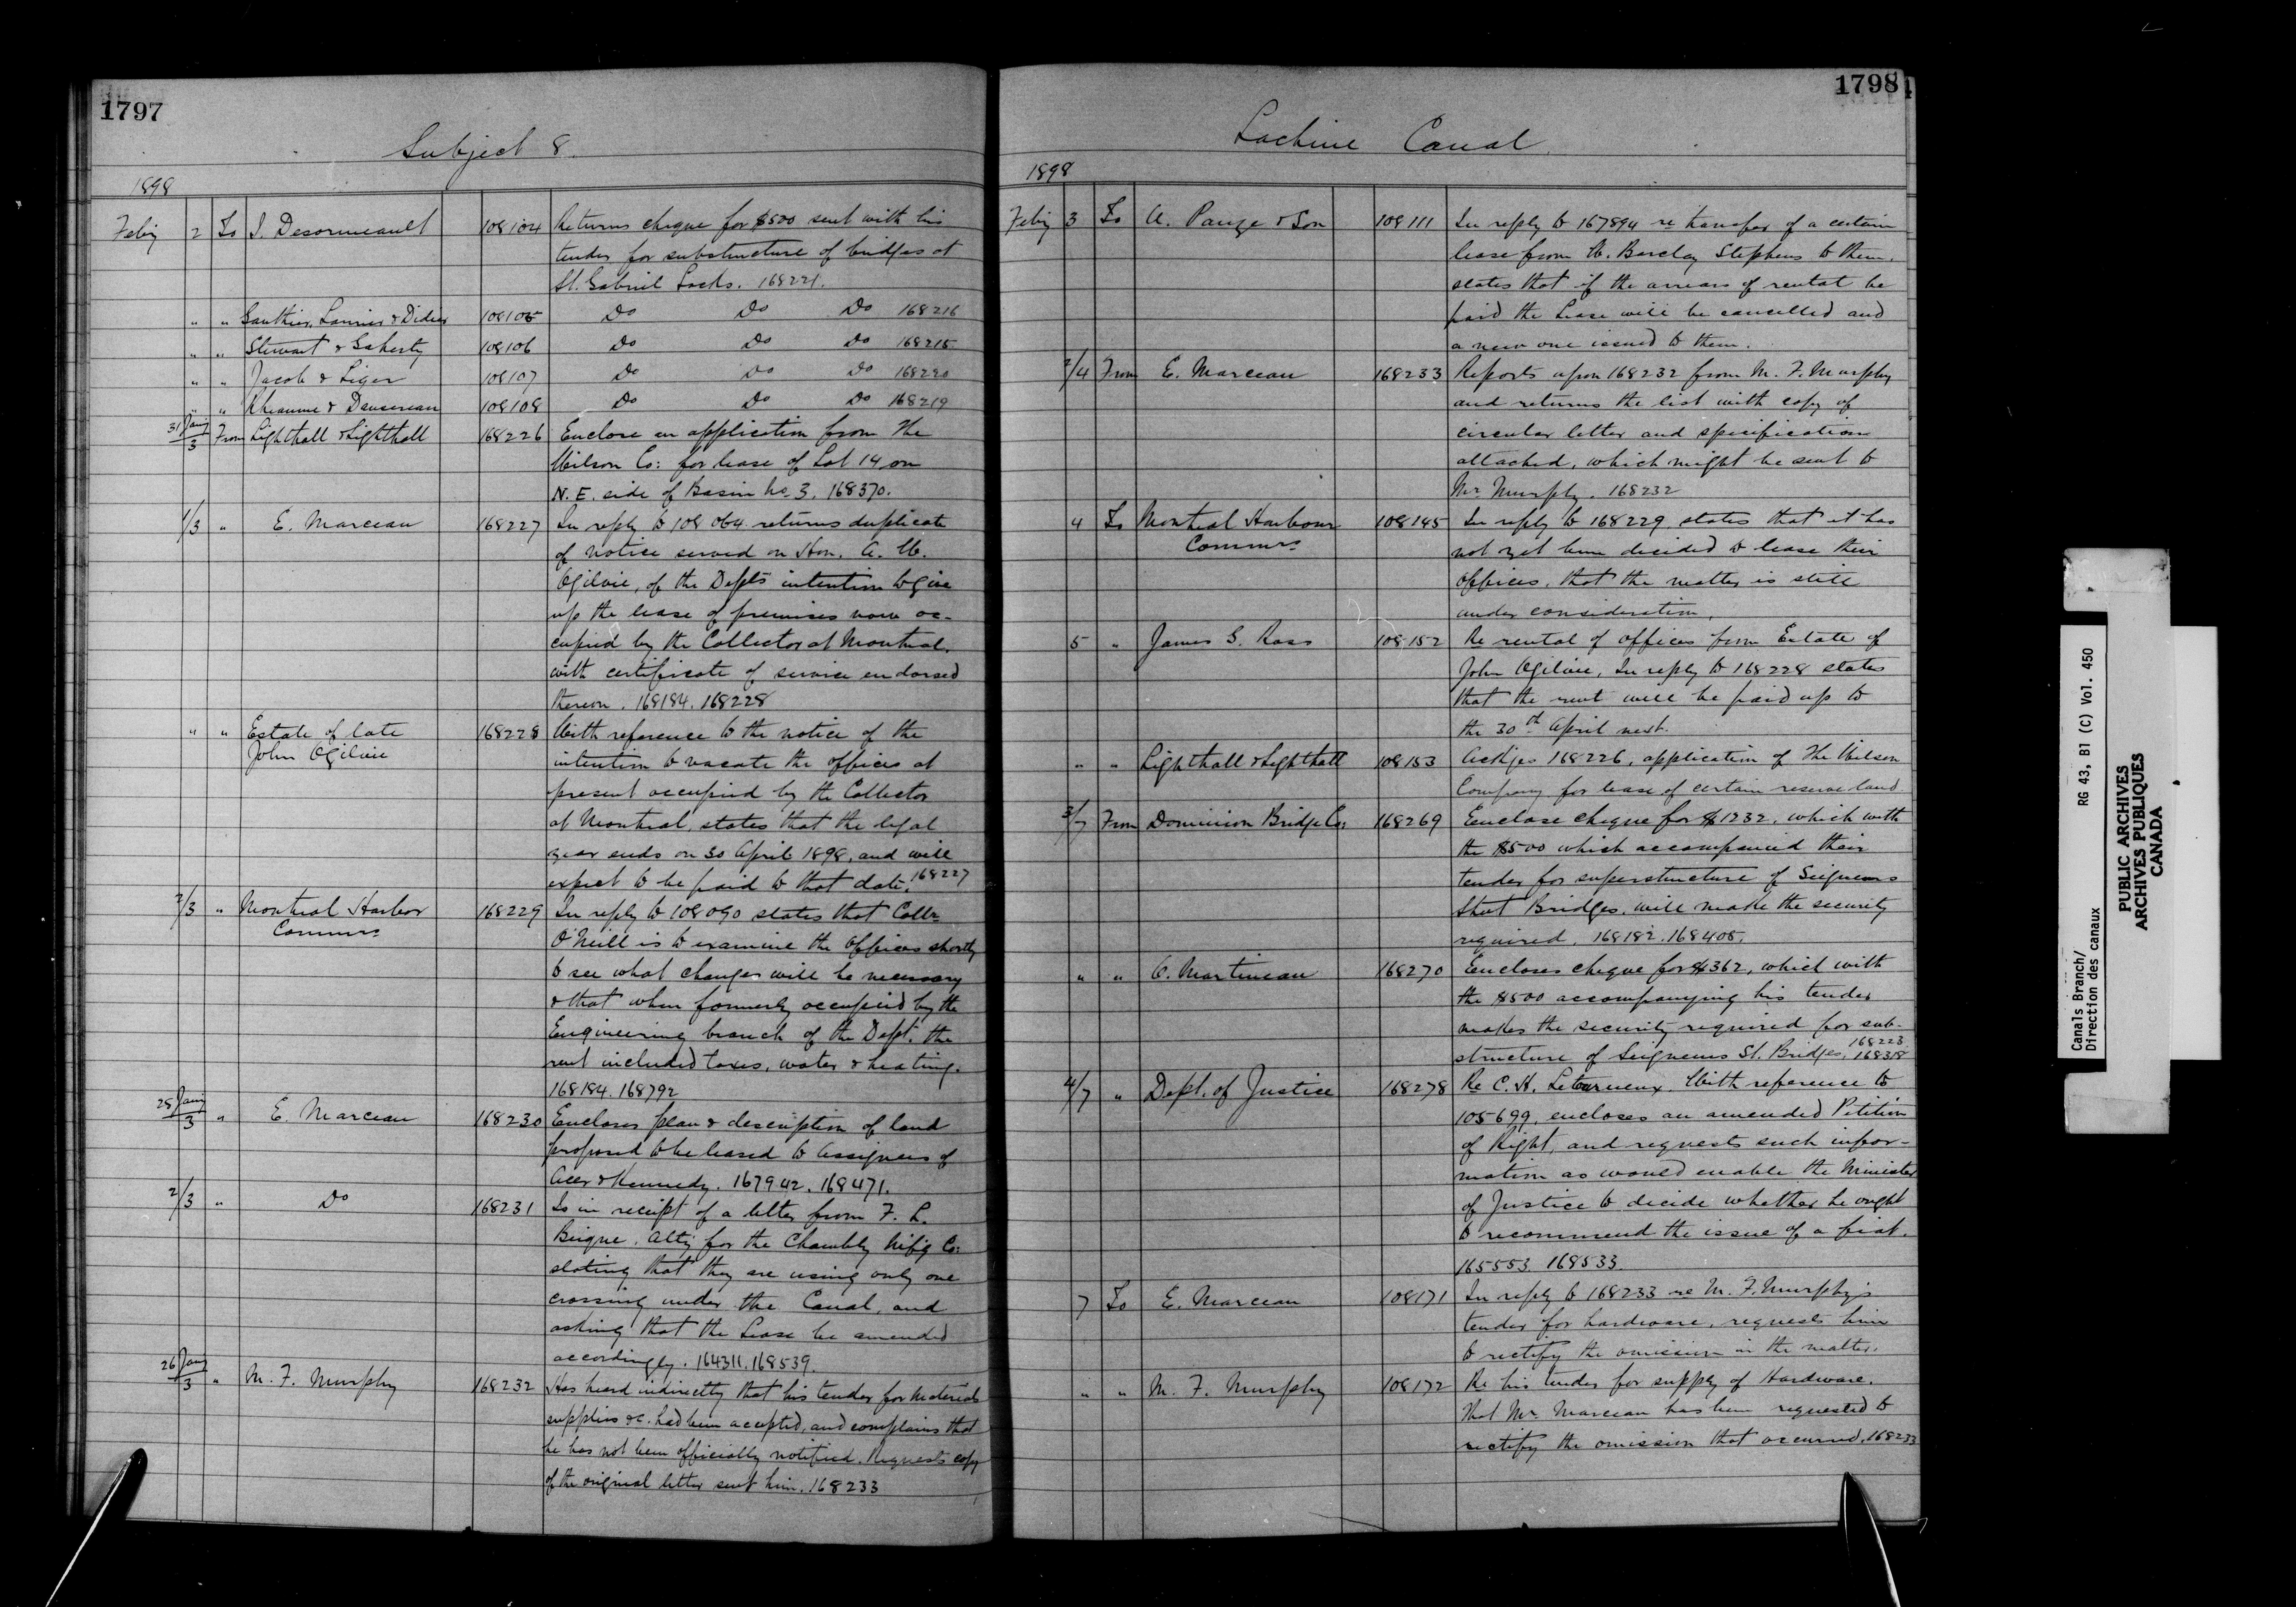 1797
Subject 8.
1898
Feby 2 To J. Desormeault 108104 Returns cheque for $500 sent with his
tender for substructure of bridges at
St. Gabriel Locks. 168221.
" " Gauthier, Lanier & Didier 108105 Do Do Do 168216
" " Stewart & Gaherty 108106 Do Do Do 168215
" " Jacob & Liger 108107 Do Do Do 168220
" " Rheaume & Dansereau 108108 Do Do Do 168219
31 Jany/3 From Lighthall & Lighthall 168226 Enclose an application from The
Wilson Co: for lease of Lot 14 on
N.E. side of Basin No. 3. 168370.
1/3 " E. Marceau 168227 In reply to 108064 returns duplicate
of notice served on Hon. A. W.
Ogilvie, of the Dept's intention to give
up the lease of premises now oc-
cupied by the Collector at Montreal.
with certificate of service endorsed
thereon. 168184. 168228
" " Estate of late 168228 With reference to the notice of the
John Ogilvie intention to vacate the offices at
present occupied by the Collector
at Montreal, states that the legal
year ends on 30 April 1898, and will
expect to be paid to that date. 168227
2/3 " Montreal Harbor 168229 In reply to 108090 states that Collr
Commrs O'Neill is to examine the offices shortly
to see what changes will be necessary
& that when formerly occupied by the
Engineering branch of the Dept. the
rent included taxes, water & heating.
168184. 168792
28 Jany/3 " E. Marceau 168230 Encloses plan & description of land
proposed to be leased to assignees of
Acer & Kennedy. 167942. 168471.
2/3 " Do 168231 Is in receipt of a letter from F. L.
Beique. Atty for the Chambly Mfg Co:
stating that they are using only one
crossing under the Canal, and
asking that the Lease be amended
accordingly. 164311. 168539.
26 Jany/3 " M. F. Murphy 168232 Has heard indirectly that his tender for materials
supplies &c. had been accepted, and complains that
he has not been officially notified. Requests copy
of the original letter sent him. 168233
1798
Lachine Canal.
1898
Feby 3 To A. Pauze & Son 108111 In reply to 167894 re transfer of a certain
lease from W. Barclay Stephens to them.
states that if the arrears of rental be
paid the Lease will be cancelled and
a new one issued to them.
2/4 From E. Marceau 168233 Reports upon 168232 from M. F. Murphy
and returns the list with copy of
circular letter and specification
attached, which might be sent to
Mr Murphy. 168232
4 To Montreal Harbour 108145 In reply to 168229 states that it has
Commrs not yet been decided to lease their
offices, that the matter is still
under consideration.
5 " James G. Ross 108152 Re rental of offices from Estate of
John Ogilvie, In reply to 168228 states
that the rent will be paid up to
the 30th April next.
" " Lighthall & Lighthall 108153 Ackgs 168226, application of The Wilson
Company for lease of certain reserve land.
3/7 From Dominion Bridge Co: 168269 Enclose cheque for $1232, which with
the $500 which accompanied their
tender for superstructure of Seigneurs
Street Bridges, will make the security
required. 168182. 168405.
" " O. Martineau 168270 Encloses cheque for $362, which with
the $500 accompanying his tender
makes the security required for sub-
structure of Seigneurs St. Bridges. 168223. 168318
4/7 " Dept. of Justice 168278 Re C. H. Letourneux. With reference to
105699, encloses an amended Petition
of Right, and requests such infor-
mation as would enable the Minister
of Justice to decide whether he ought
to recommend the issue of a fiat.
165553. 168533.
7 To E. Marceau 108171 In reply to 168233 re M. F. Murphy's
tender for hardware, requests him
to rectify the omission in the matter.
" " M. F. Murphy 108172 Re his tender for supply of Hardware.
That Mr. Marceau has been requested to
rectify the omission that occurred. 168233
Canals Branch/
Direction des canaux
RG 43, B1 (C) Vol. 450
PUBLIC ARCHIVES
ARCHIVES PUBLIQUES
CANADA